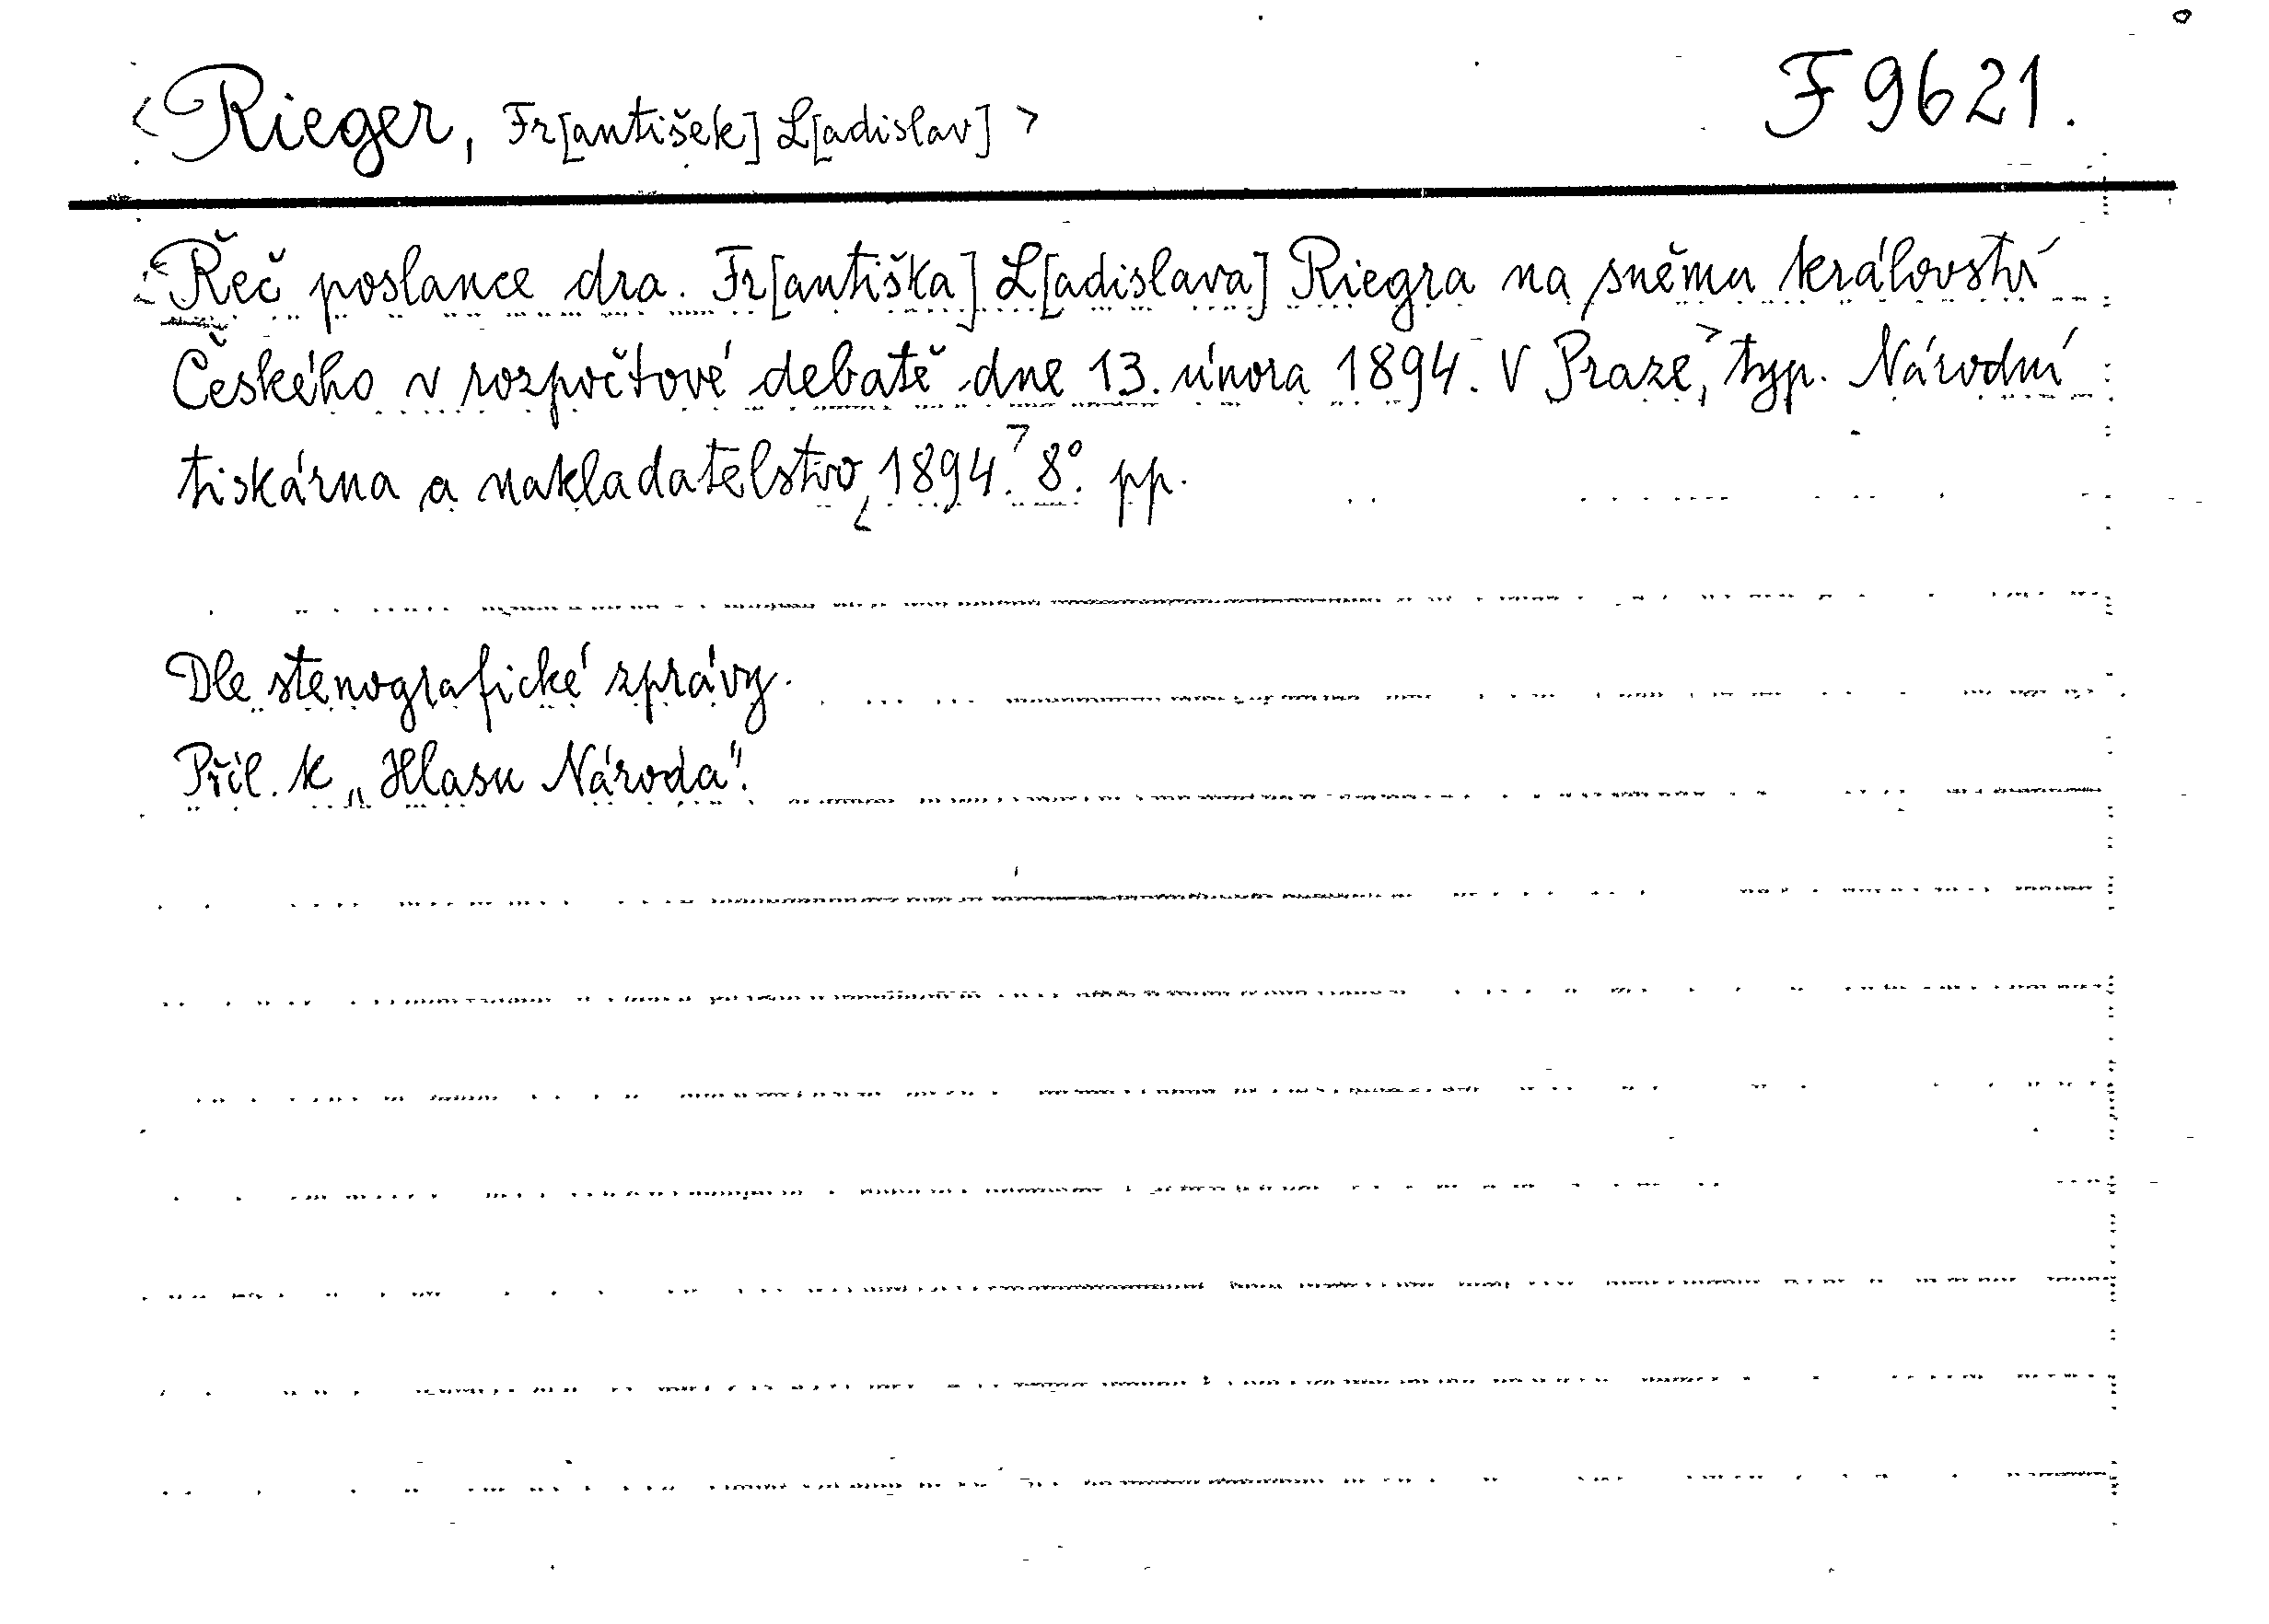 <Rieger, Fr[antišek] L[adislav]> F 9621.
<Řeč poslance dra. Fr[antiška] L[adislava] Riegra na sněmu království
Českého v rozpočtové debatě dne 13. února 1894. V Praze,> typ. Národní
tiskárna a nakladatelstvo, <1894.> 8°. pp.
Dle stenografické zprávy.
Příl. k „Hlasu Národa".